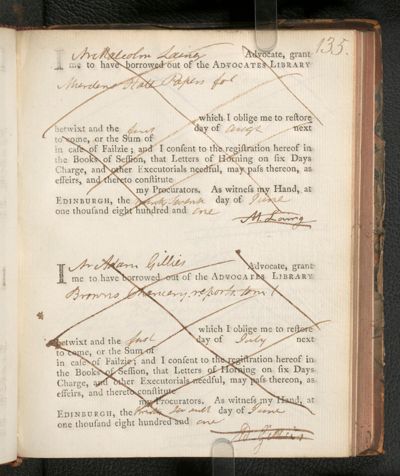 135.
I Mr Malcolm Laing Advocate, grant
me to have borrowed out of the ADVOCATES LIBRARY
Murdens State Papers fol
which I oblige me to restore
betwixt and the first day of augt next
to come, or the Sum of
in case of Failzie; and I consent to the registration hereof in
the Books of Session, that Letters of Horning on six Days
Charge, and other Executorials needful, may pass thereon, as
effeirs, and thereto constitute
my Procurators. As witness my Hand, at
EDINBURGH, the day of June
one thousand eight hundred and one
M Laing
I Mr Adam Gillies Advocate, grant
me to have borrowed out of the ADVOCATES LIBRARY
Browns Chancery reports tom 1
which I oblige me to restore
betwixt and the first day of July next
to come, or the Sum of
in case of Failzie; and I consent to the registration hereof in
the Books of Session, that Letters of Horning on six Days
Charge, and other Executorials needful, may pass thereon, as
effeirs, and thereto constitute
my Procurators. As witness my Hand, at
EDINBURGH, the day of June
one thousand eight hundred and one
Ad Gillies